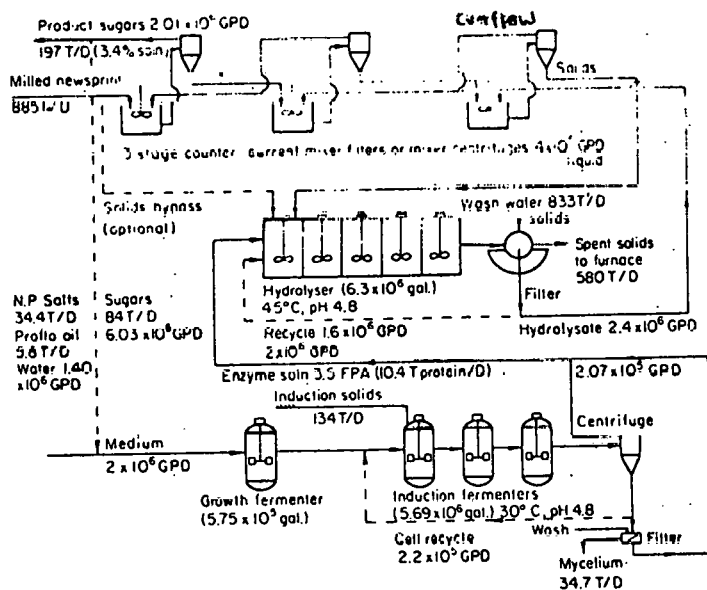 Product sugars 2.01 x10⁶ GPD
197 T/D (3.4% soln)
Overflow
Solids
Milled newsprint
885 T/D
3 stage counter current mixer filters or mixer centrifuges 4x10⁶ GPD
liquid
Solids bypass
(optional)
Wash water 833T/D
solids
Spent solids
to furnace
580 T/D
Filter
Hydrolyser (6.3 x10⁶ gal.)
45°C, pH 4.8
Recycle 1.6 x10⁶ GPD
2x10⁶ GPD
Hydrolysate 2.4 x10⁶ GPD
N.P Salts
34.4T/D
Proflo oil
5.8 T/D
Water 1.40
x10⁶ GPD
Sugars
84T/D
6.03 x10⁵GPD
Enzyme soln 3.5 FPA (10.4 T protein/D)
2.07 x10⁵
Induction solids
134 T/D
Centrifuge
Medium
2 x10⁶ GPD
Growth fermenter
(5.75 x10⁵ gal.)
Induction fermenters
(5.69 x10⁶ gal.) 30°C, pH 4.8
Cell recycle
2.2 x10⁵ GPD
Wash
Filter
Mycelium
34.7 T/D